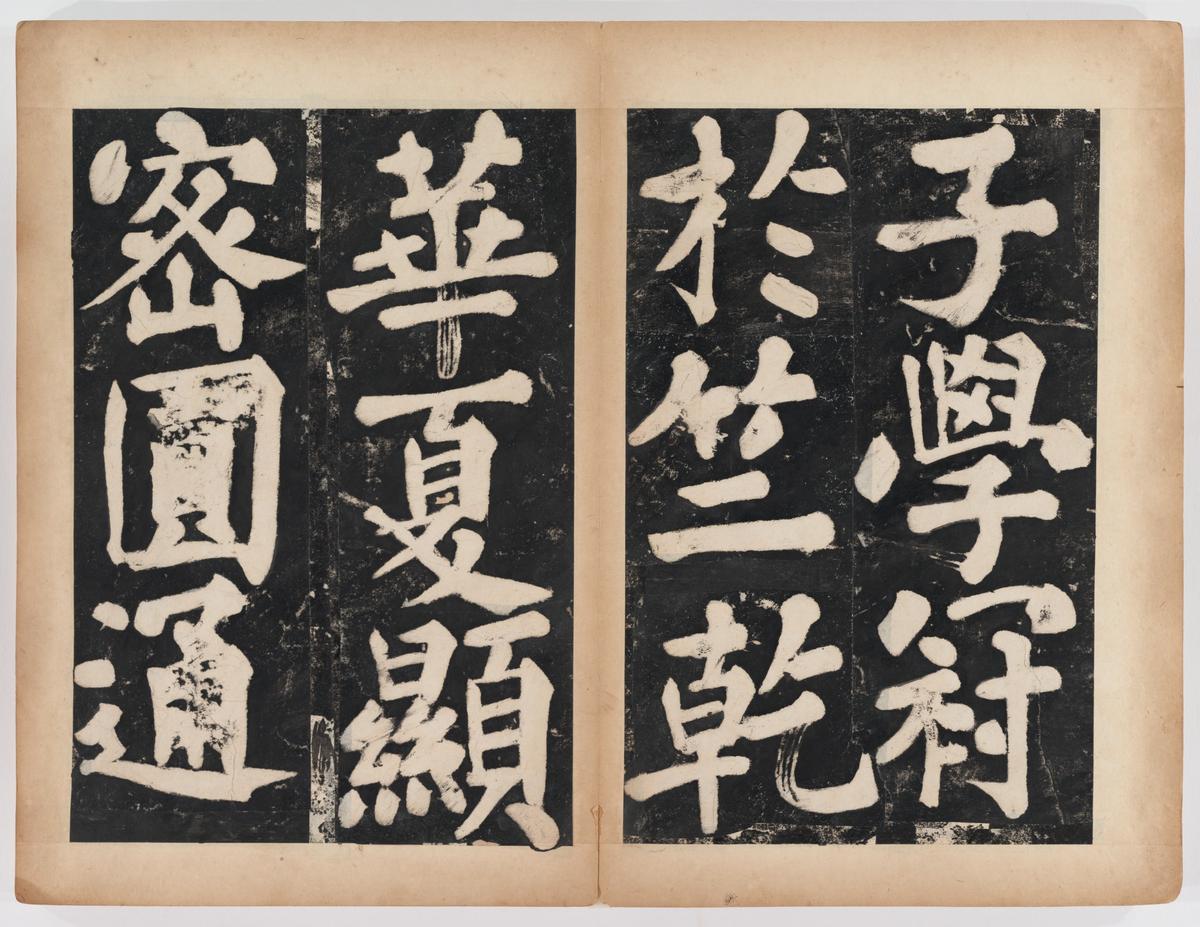 子學冠
於竺乾
華夏顯
密圓通